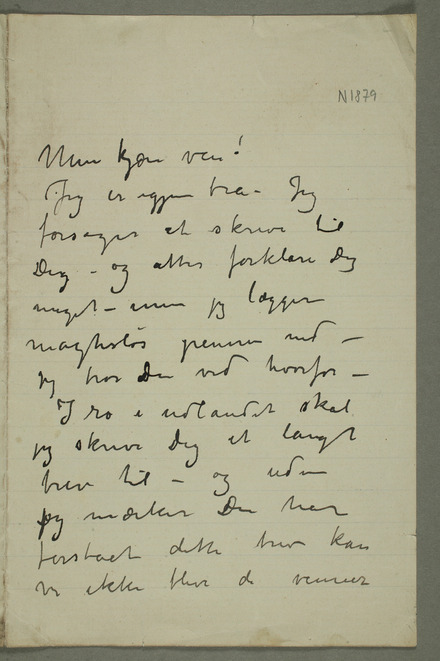 N 1879
Min kjære ven!
Jeg er igjen bra – Jeg
forsøger at skrive til
Dig – og atter forklare Dig
meget – men jeg lægger
magtesløs pennen ned –
jeg tror Du ved hvorfor –
I ro i udlandet skal
jeg skrive Dig et langt
brev til – og uden
jeg mærker Du har
forstaaet dette brev kan
vi ikke blive de venner